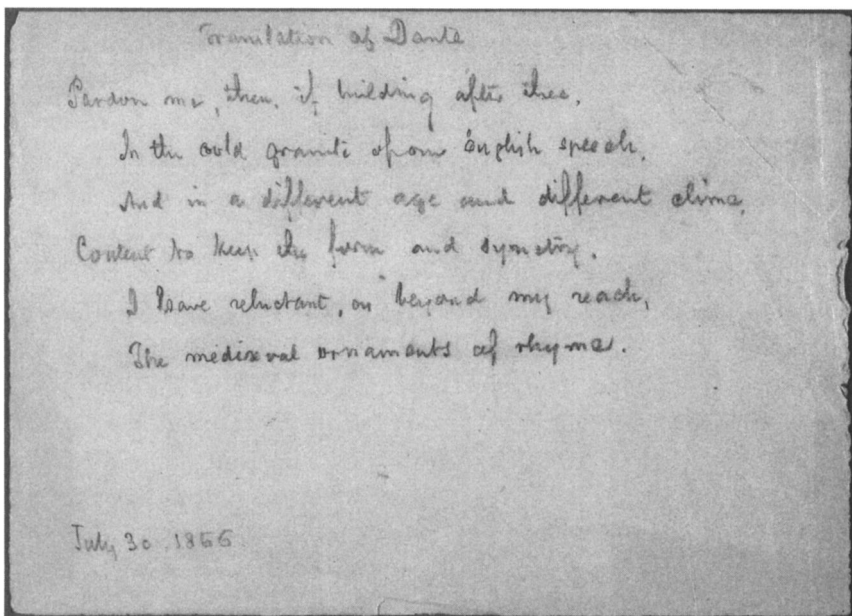 Translation of Dante
Pardon me, then, if building after thee,
In the cold granite of our English speech,
And in a different age and different clime,
Content to keep the form and symetry,
I leave reluctant, as beyond my reach,
The mediæval ornaments of rhyme.
July 30. 1866